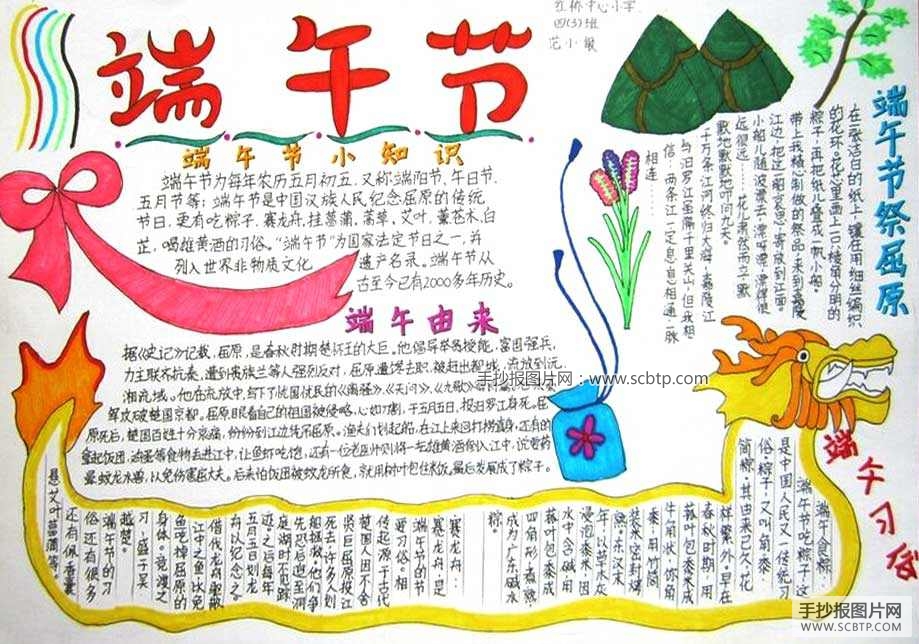 红桥中心小学
四(3)班
范小敏
端午节
端午节小知识
端午节为每年农历五月初五,又称端阳节、午日节、
五月节等;端午节是中国汉族人民纪念屈原的传统
节日,更有吃粽子,赛龙舟,挂菖蒲,蒿草,艾叶,薰苍术,白
芷,喝雄黄酒的习俗。“端午节”为国家法定节日之一,并
列入世界非物质文化遗产名录。端午节从
古至今已有2000多年历史。
端午节祭屈原
在一张洁白的纸上,镶在用细丝编织
的花环,花心里画上一只棱角分明的
粽子,再把纸儿叠成一帆小船。
带上我精心制做的祭品,来到嘉陵
江边,把这船哀思,寄放到江面。
小船儿随波漂去,漂呀漂,漂得很
远很远……花儿肃然而立,默
默地默默地叩问苍天。
千万条江河终归大海,嘉陵江
与汨罗江虽隔千里关山,但我相
信:两条江一定息息相通一脉
相连……
端午由来
据《史记》记载,屈原,是春秋时期楚怀王的大臣。他倡导举贤授能,富国强兵,
力主联齐抗秦,遭到贵族兰等人强烈反对,屈原遭馋去职,被赶出都城,流放到沅、
湘流域。他在流放中,写下了忧国忧民的《离骚》、《天问》、《九歌》
军攻破楚国京都。屈原眼看自己的祖国被侵略,心如刀割,于五月五日,投汨罗江身死。屈
原死后,楚国百姓十分哀痛,纷纷到江边凭吊屈原。渔夫们划起船,在江上来回打捞真身,还有的
拿起饭团、鸡蛋等食物丢进江中,让鱼虾吃饱,还有一位老医师则将一坛雄黄酒倒入江中,说要药
晕蛟龙水兽,以免伤害屈大夫。后来怕饭团被蛟龙所食,就用树叶包住米饭,最后发展成了粽子。
手抄报图片网:www.scbtp.com
端午习俗
端午食粽:
端午节吃粽子,这
是中国人民又一传统习
俗,粽子,又叫角黍、
筒粽,其由来已久,花
样繁外。早在
春秋时期,用
菰叶包黍米成
牛角状,称角
黍,用竹筒
装米密封烤
熟。东汉末
年,以草木灰
浸泡黍米,因
水中含碱,用
菰叶包黍米成
四角形,煮熟,
成为广东碱水
粽。
赛龙舟:
赛龙舟,是
端午节的节
要习俗。相
传起源于古代
楚国人因不舍
贤臣屈原投江
死去,许多人划
船追赶拯救。他们争
先恐后,追至洞
庭湖时不见踪
迹。之后每年
五月五日划龙
舟以纪念之。
借划龙舟驱散
江中之鱼,以免
鱼吃掉屈原的
身体。竞渡之
习,盛于吴
越楚。
端午节的习
俗还有很多
还有佩香囊
悬艾叶菖蒲等。
手抄报图片网
WWW.SCBTP.COM